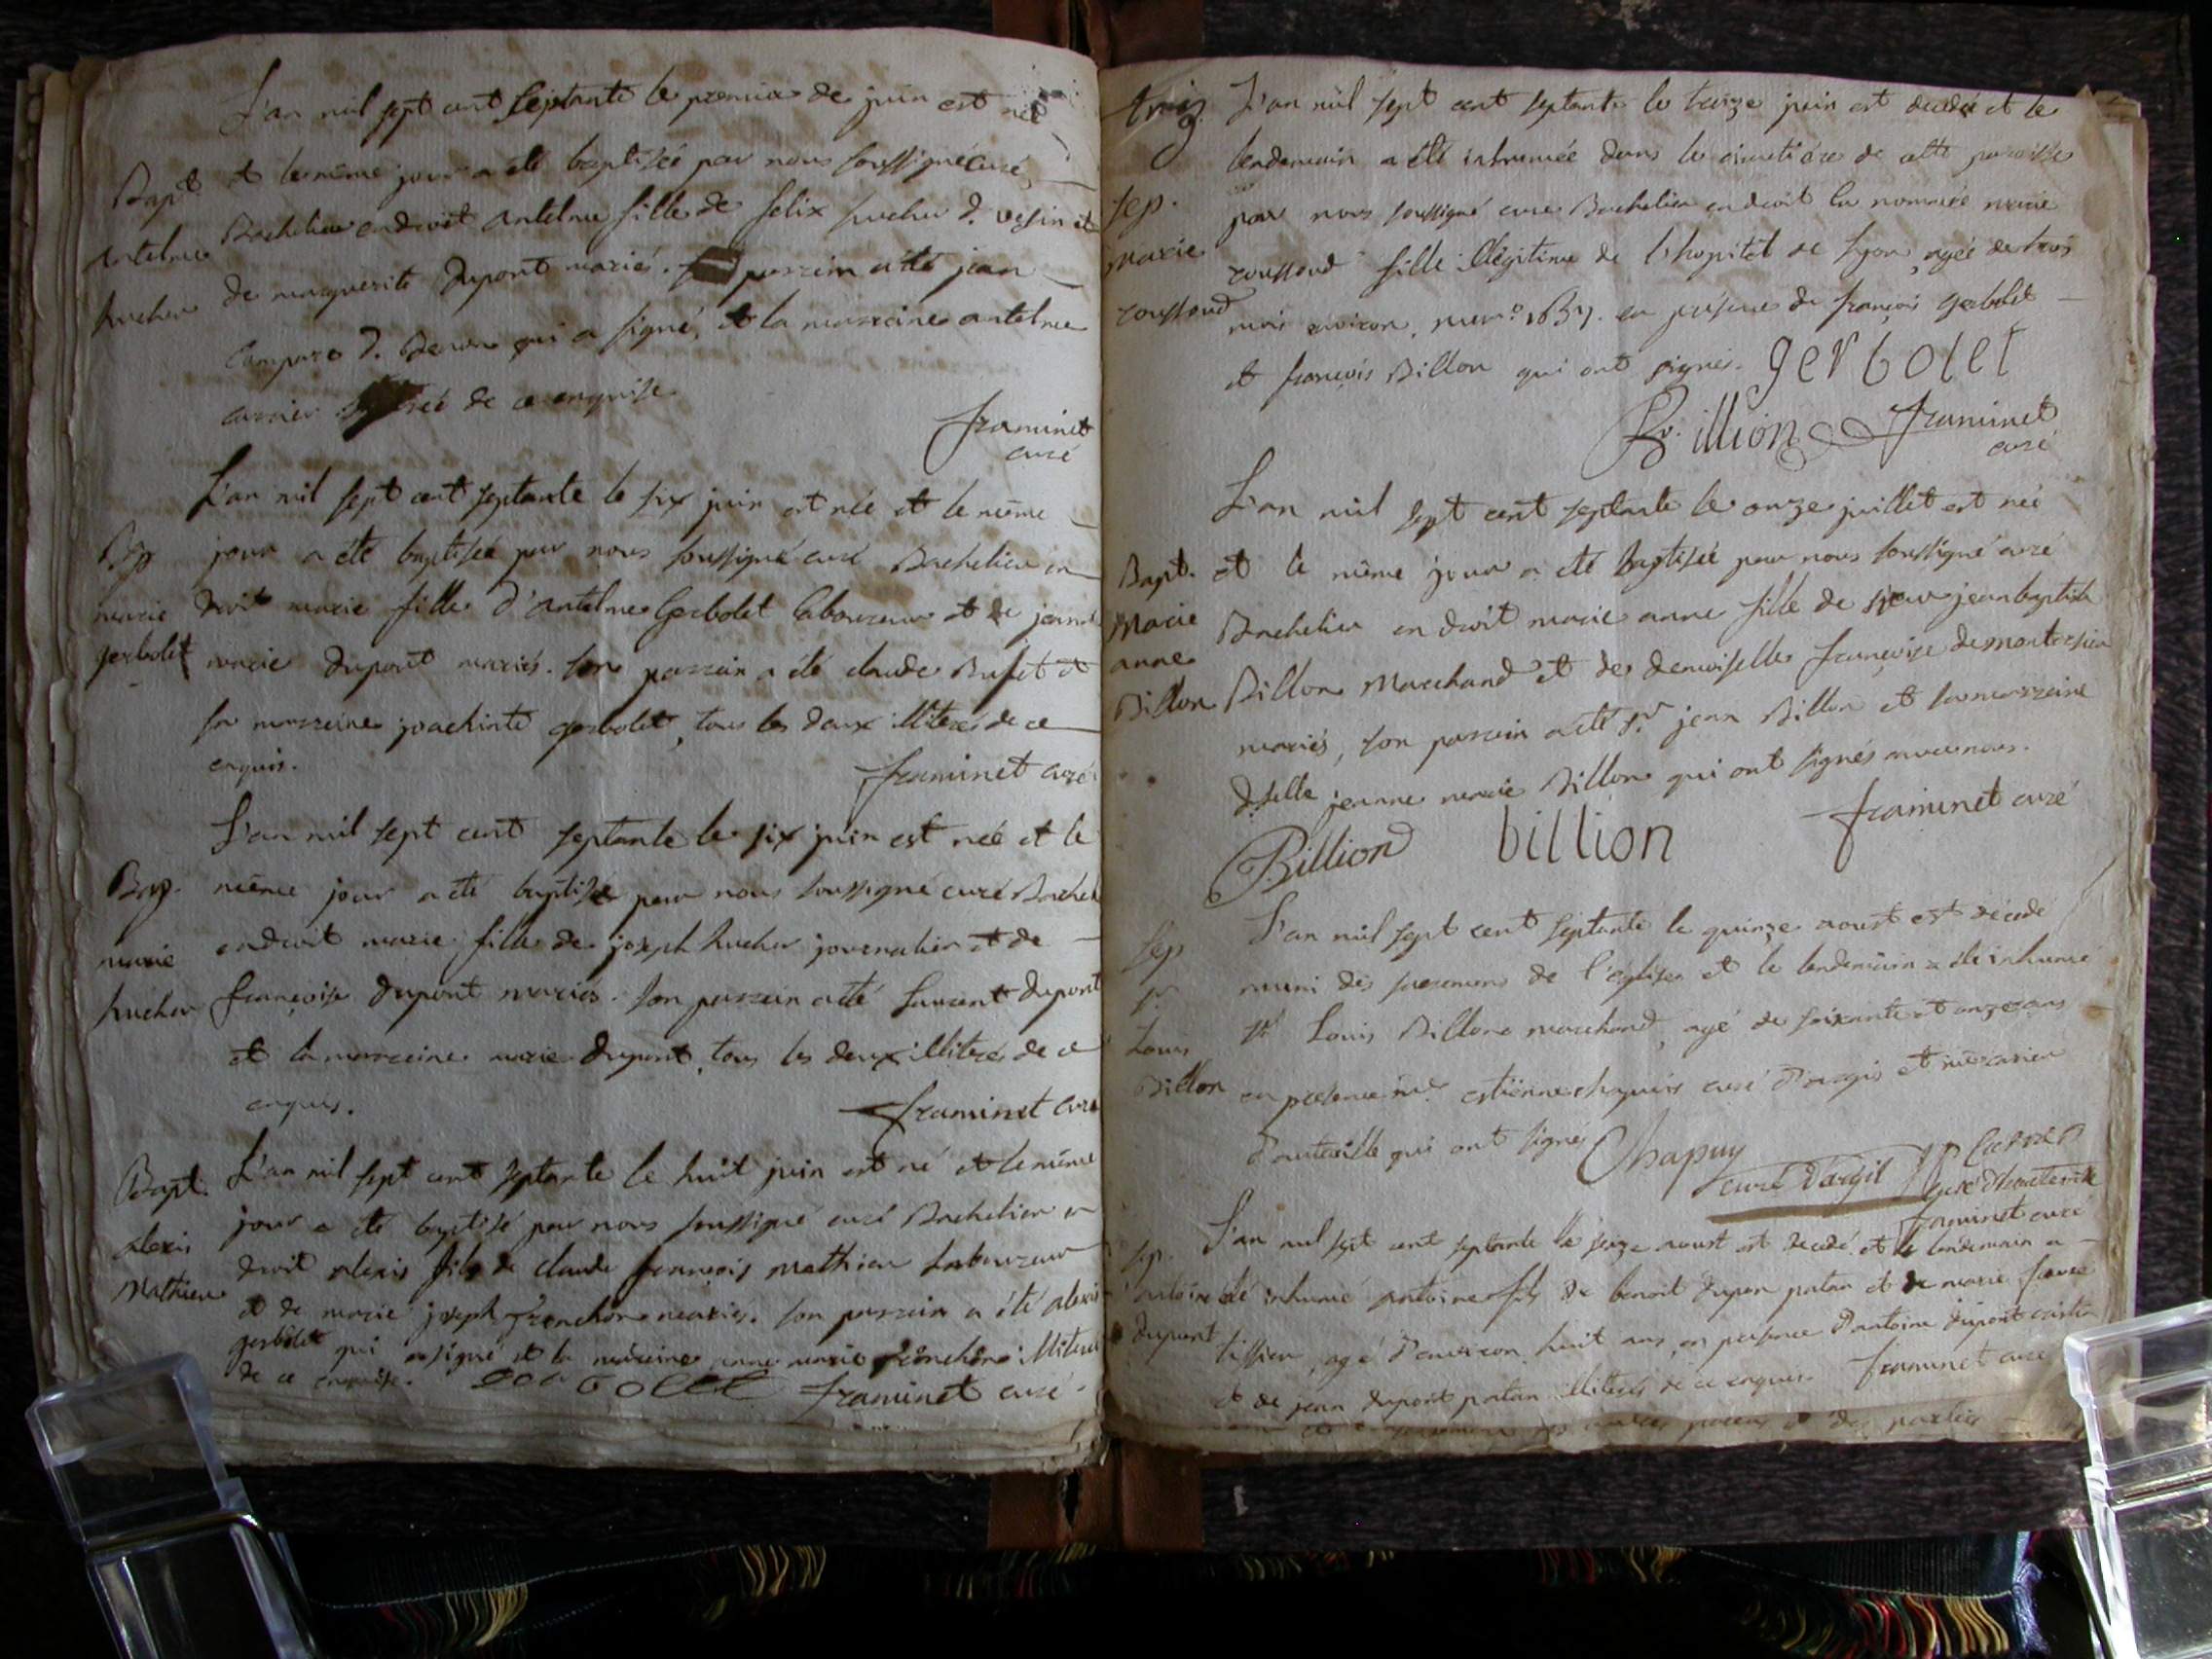 L'an mil sept cent septante le premier de juin est née
Bapt. et le même jour a été baptisée par nous soussigné curé
Antelme Bachelier en droit antelme fille de felix hucher d. vesin et
hucher de marguerite dupont mariés. parrain a été jean
d. qui a signé, et la marraine antelme
de ce enquise
framinet
curé
L'an mil sept cent septante le six juin est née et le même
Bap jour a été baptisée par nous soussigné curé Bachelier en
marie droit marie fille d'antelme Gerbolet laboureur et de jeanne
gerbolet marie dupont mariés. son parrain a été claude Bufet et
sa marraine joachinte gerbolet, tous les deux illiterés de ce
enquis.
framinet curé
L'an mil sept cent septante le six juin est née et le
Bap. même jour a été baptisée par nous soussigné curé Bachel
marie en droit marie fille de joseph hucher journalier et de
hucher françoise dupont mariés. son parrain a été laurent dupont
et la marraine marie dupont, tous les deux illiterés de ce
enquis.
framinet curé
Bapt. L'an mil sept cent septante le huit juin est né et le même
jour a été baptisé par nous soussigné curé Bachelier en
alexis droit alexis fils de claude françois mathieu laboureur
Mathieu et de marie joseph franchon mariés. son parrain a été alexis
gerbolet qui a signé et la maraine anne marie franchon illiterée
de ce enquise. gerbolet framinet curé.
L'an mil sept cent septante le treize juin est decedée et le
lendemain a été inhumée dans le cimetière de cette paroisse
sep. par nous soussigné curé Bachelier en droit la nommée marie
marie roussoud fille illégitime de l'hopital de lyon, agée de trois
roussoud mois environ, num.o 1659. en presence de françois gerbolet
et françois Billon qui ont signés. gerbolet
Billion framinet
curé
L'an mil sept cent septante le onze juillet est née
Bapt. et le même jour a été baptisée par nous soussigné curé
Marie Bachelier en droit marie anne fille de sieur jean baptiste
anne
Billon Billon Marchand et de demoiselle françoise demontersier
mariés, son parrain a été sr. jean Billon et sa marraine
dselle jeanne marie Billon qui ont signés avec nous.
Billion billion framinet curé
L'an mil sept cent septante le quinze aoust est décédé
sep muni des sacremens de l'église et le lendemain a été inhumé
sr. sr. Louis Billon marchand, agé de soixante et onze ans
Louis
Billon en presence mre estienne chapuis curé d'argis et
d'auteville qui ont signé Chapuy
curé d'argil
curé d'hauteville
framinet curé
sep. L'an mil sept cent septante le seize aoust est decedé et le lendemain a
antoine été inhumé antoine fils de benoit dupon patan et de marie
dupont tissier, agé d'environ huit ans, en presence d'antoine dupont
et de jean dupont patan illiterés de ce enquis. framinet curé